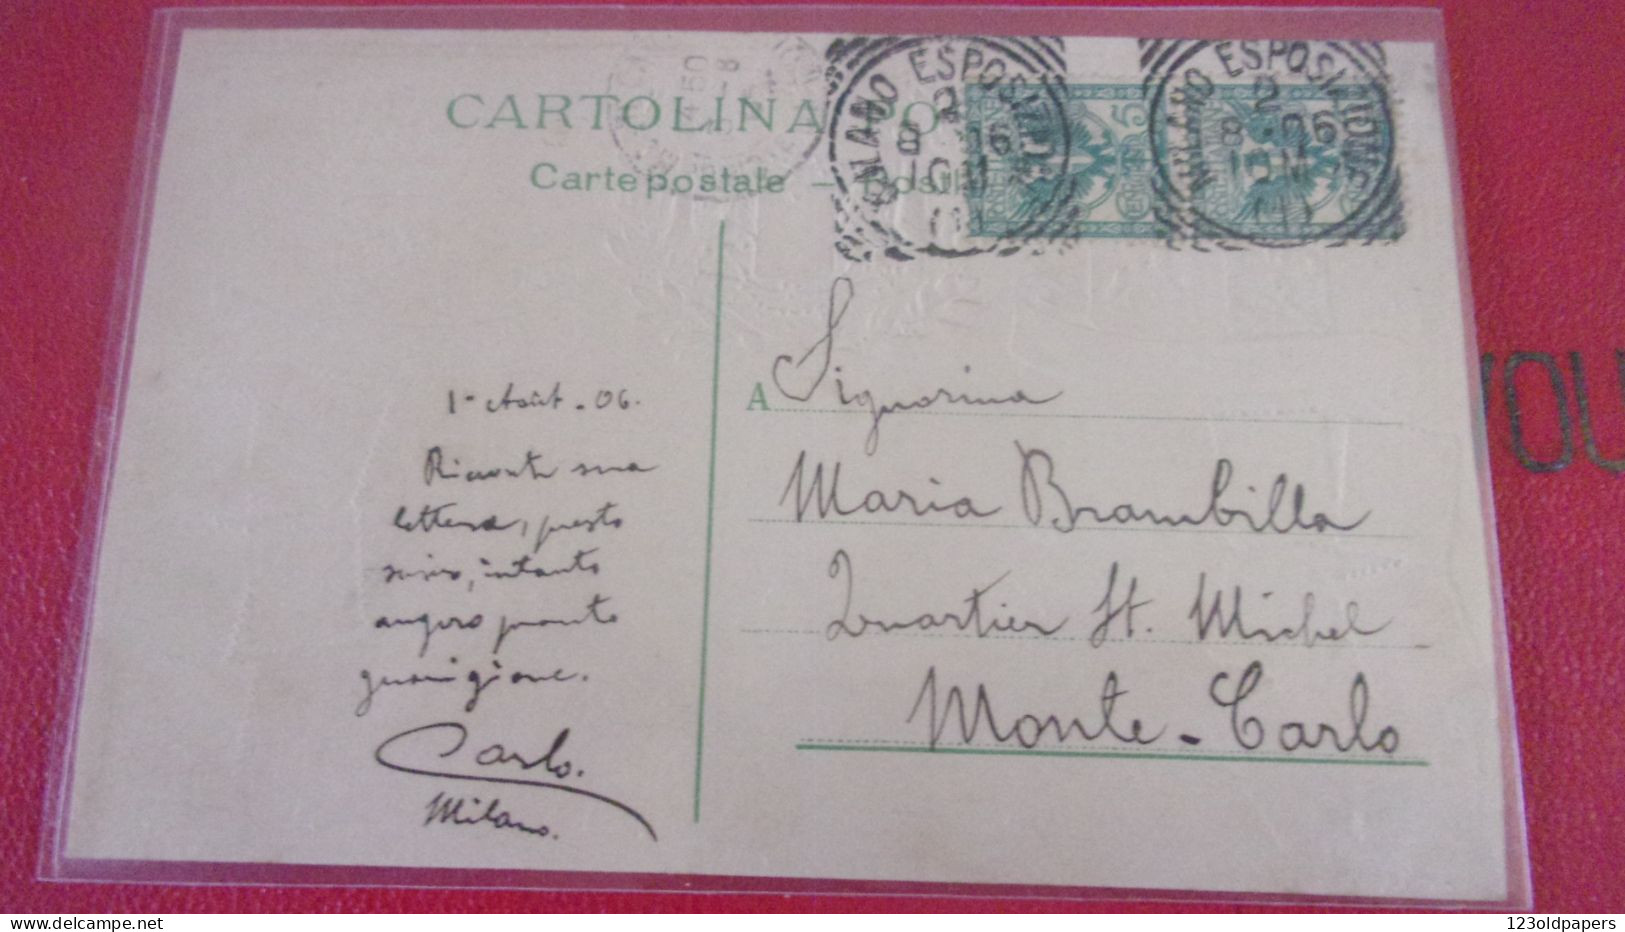 CARTOLINA PO
Carte postale – Postk
MILANO ESPOSIZIONE
2
8 · 06
10 M
MILANO ESPOSIZIONE
2
8 · 06
10 M
5
1er Août - 06.
Ricevuto sua
lettera, presto
intanto
auguro pronta
guarigione.
Carlo.
Milano.
A Signorina
Maria Brambilla
Quartier St. Michel
Monte-Carlo
YOU
123oldpapers